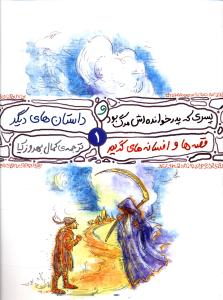 پسری که پدرخوانده‌اش مرگ بود
و
داستان‌های دیگر
۱
قصه‌ها و افسانه‌های گریم
ترجمه‌ی کمال بهروزکیا